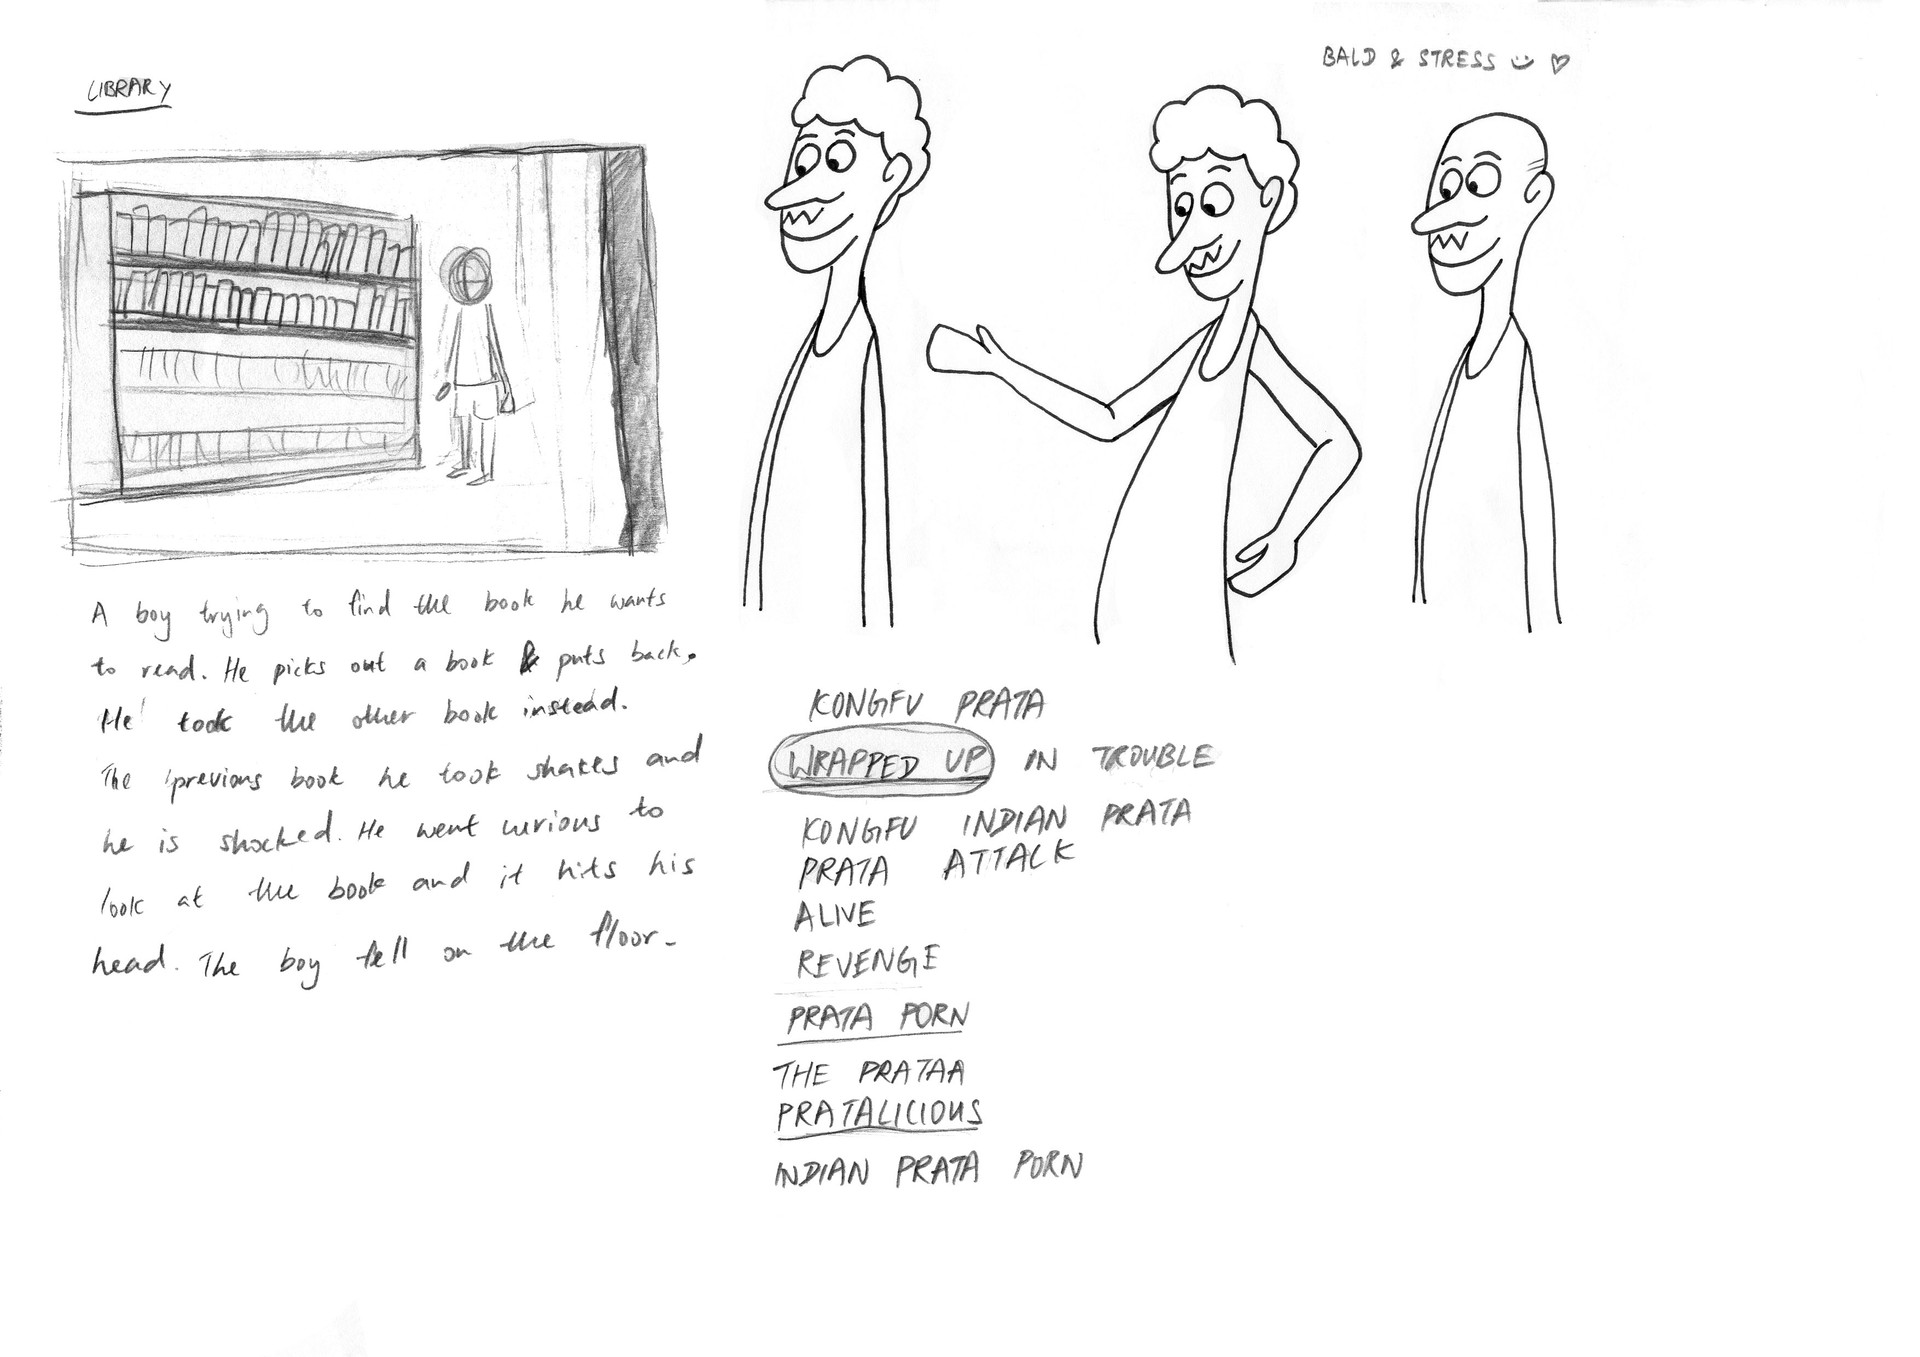 LIBRARY
A boy trying to find the book he wants
to read. He picks out a book & puts back.
He took the other book instead.
The previous book he took shakes and
he is shocked. He went curious to
look at the book and it hits his
head. The boy fell on the floor.
BALD & STRESS
KONGFU PRATA
WRAPPED UP IN TROUBLE
KONGFU INDIAN PRATA
PRATA ATTACK
ALIVE
REVENGE
PRATA PORN
THE PRATAA
PRATALICIOUS
INDIAN PRATA PORN